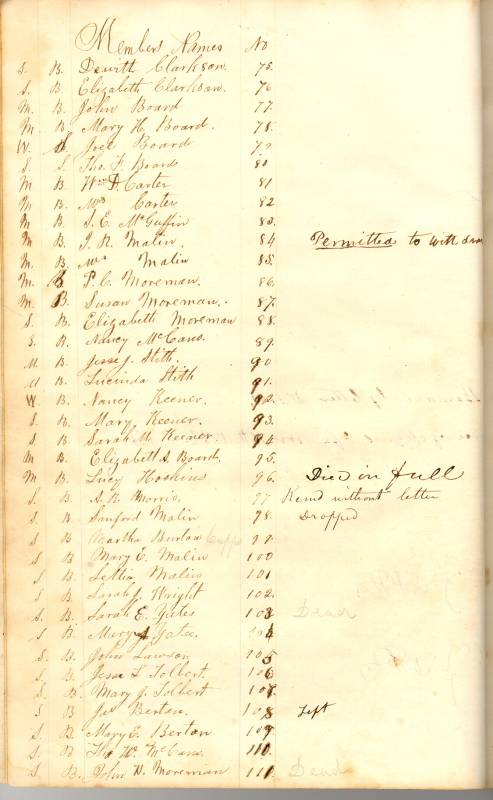 Members Names No
S. B. Dewitt Clarkson. 75.
S. B. Elizabeth Clarkson. 76
M. B. John Board 77.
M. B. Mary H. Board. 78.
W. S. Joel Board 79
S. S. Tho. F. Board 80
M B. Wm F. Carter 81
M B. Mrs Carter 82
M B. S. E. McGuffin 83.
M B. J. R. Malin. 84 Permitted to withdraw
M. B. Mrs Malin 85.
M. B P. C. Moreman. 86.
M. B. Susan Moreman. 87.
S. B. Elizabeth Moreman 88.
S. B. Nancy McCans. 89.
M B. Jesse J. Stith. 90
M B. Lucinda Stith 91.
W B. Nancy Keener. 92.
S. B. Mary Keener. 93.
S. B. Sarah M. Keener. 94
M B. Elizabeth S. Board. 95.
M B. Lucy Hoskins 96. Died in full
S. B. A. B. Morris. 97 Remd without letter
S. B. Sanford Malin 98. Dropped
S B. Agatha Burton 99.
S B. Mary E. Malin 100
S B. Lettia Malin 101
S B. Sarah J. Wright 102.
S. B. Sarah E. Yates 103 Dead
S B. Mary J Yates. 104
S. B. John Lawson 105
S. B. Jesse S Tolbert. 106
S. B. Mary J. Tolbert 107.
S B Jas Berton. 108 Left
S. B. Mary E. Berton 109
S. B Tho W. McCans. 110.
S. B. John D. Moreman 111. Dead